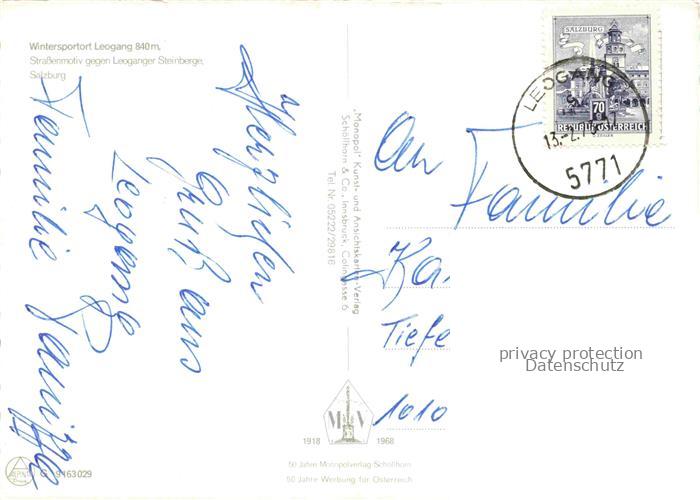 Wintersportort Leogang 840 m,
Straßenmotiv gegen Leoganger Steinberge,
Salzburg
Herzlichen
Gruß aus
Leogang
Familie
"Monopol" Kunst- und Ansichtskarten-Verlag
Schöllhorn & Co., Innsbruck, Colingasse 6
Tel. Nr. 05222/29816
SALZBURG
70
REPUBLIK ÖSTERREICH
LEOGANG
5771
An Familie
Tiefe
1010
privacy protection
Datenschutz
1918 1968
50 Jahre Monopolverlag Schöllhorn
50 Jahre Werbung für Österreich
G 9163029